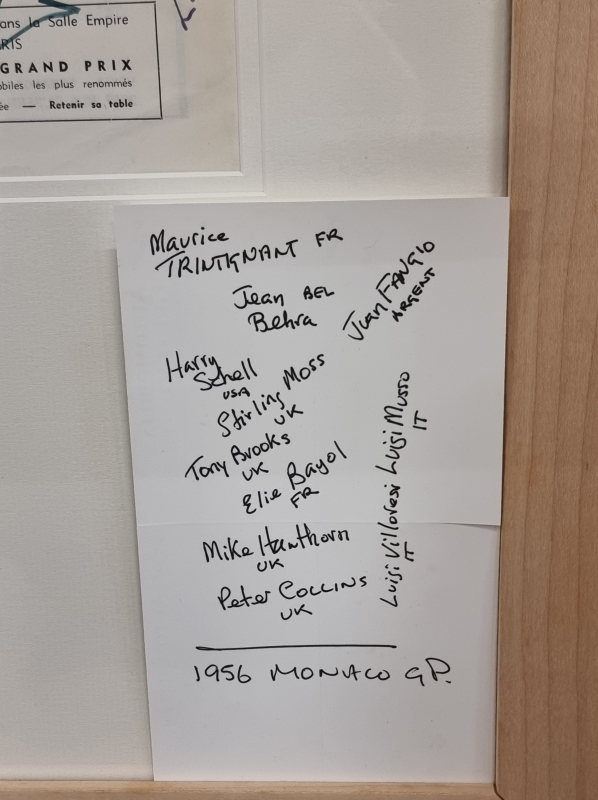 ans la Salle Empire
RIS
GRAND PRIX
biles les plus renommés
ée — Retenir sa table
Maurice
TRINTIGNANT FR
Jean BEL
Behra
Juan FANGIO
ARGENT
Harry
Schell
USA
Stirling Moss
UK
Tony Brooks
UK
Elie Bayol
FR
Luigi Musso
IT
Luigi Villoresi
IT
Mike Hawthorn
UK
Peter COLLINS
UK
1956 MONACO GP.